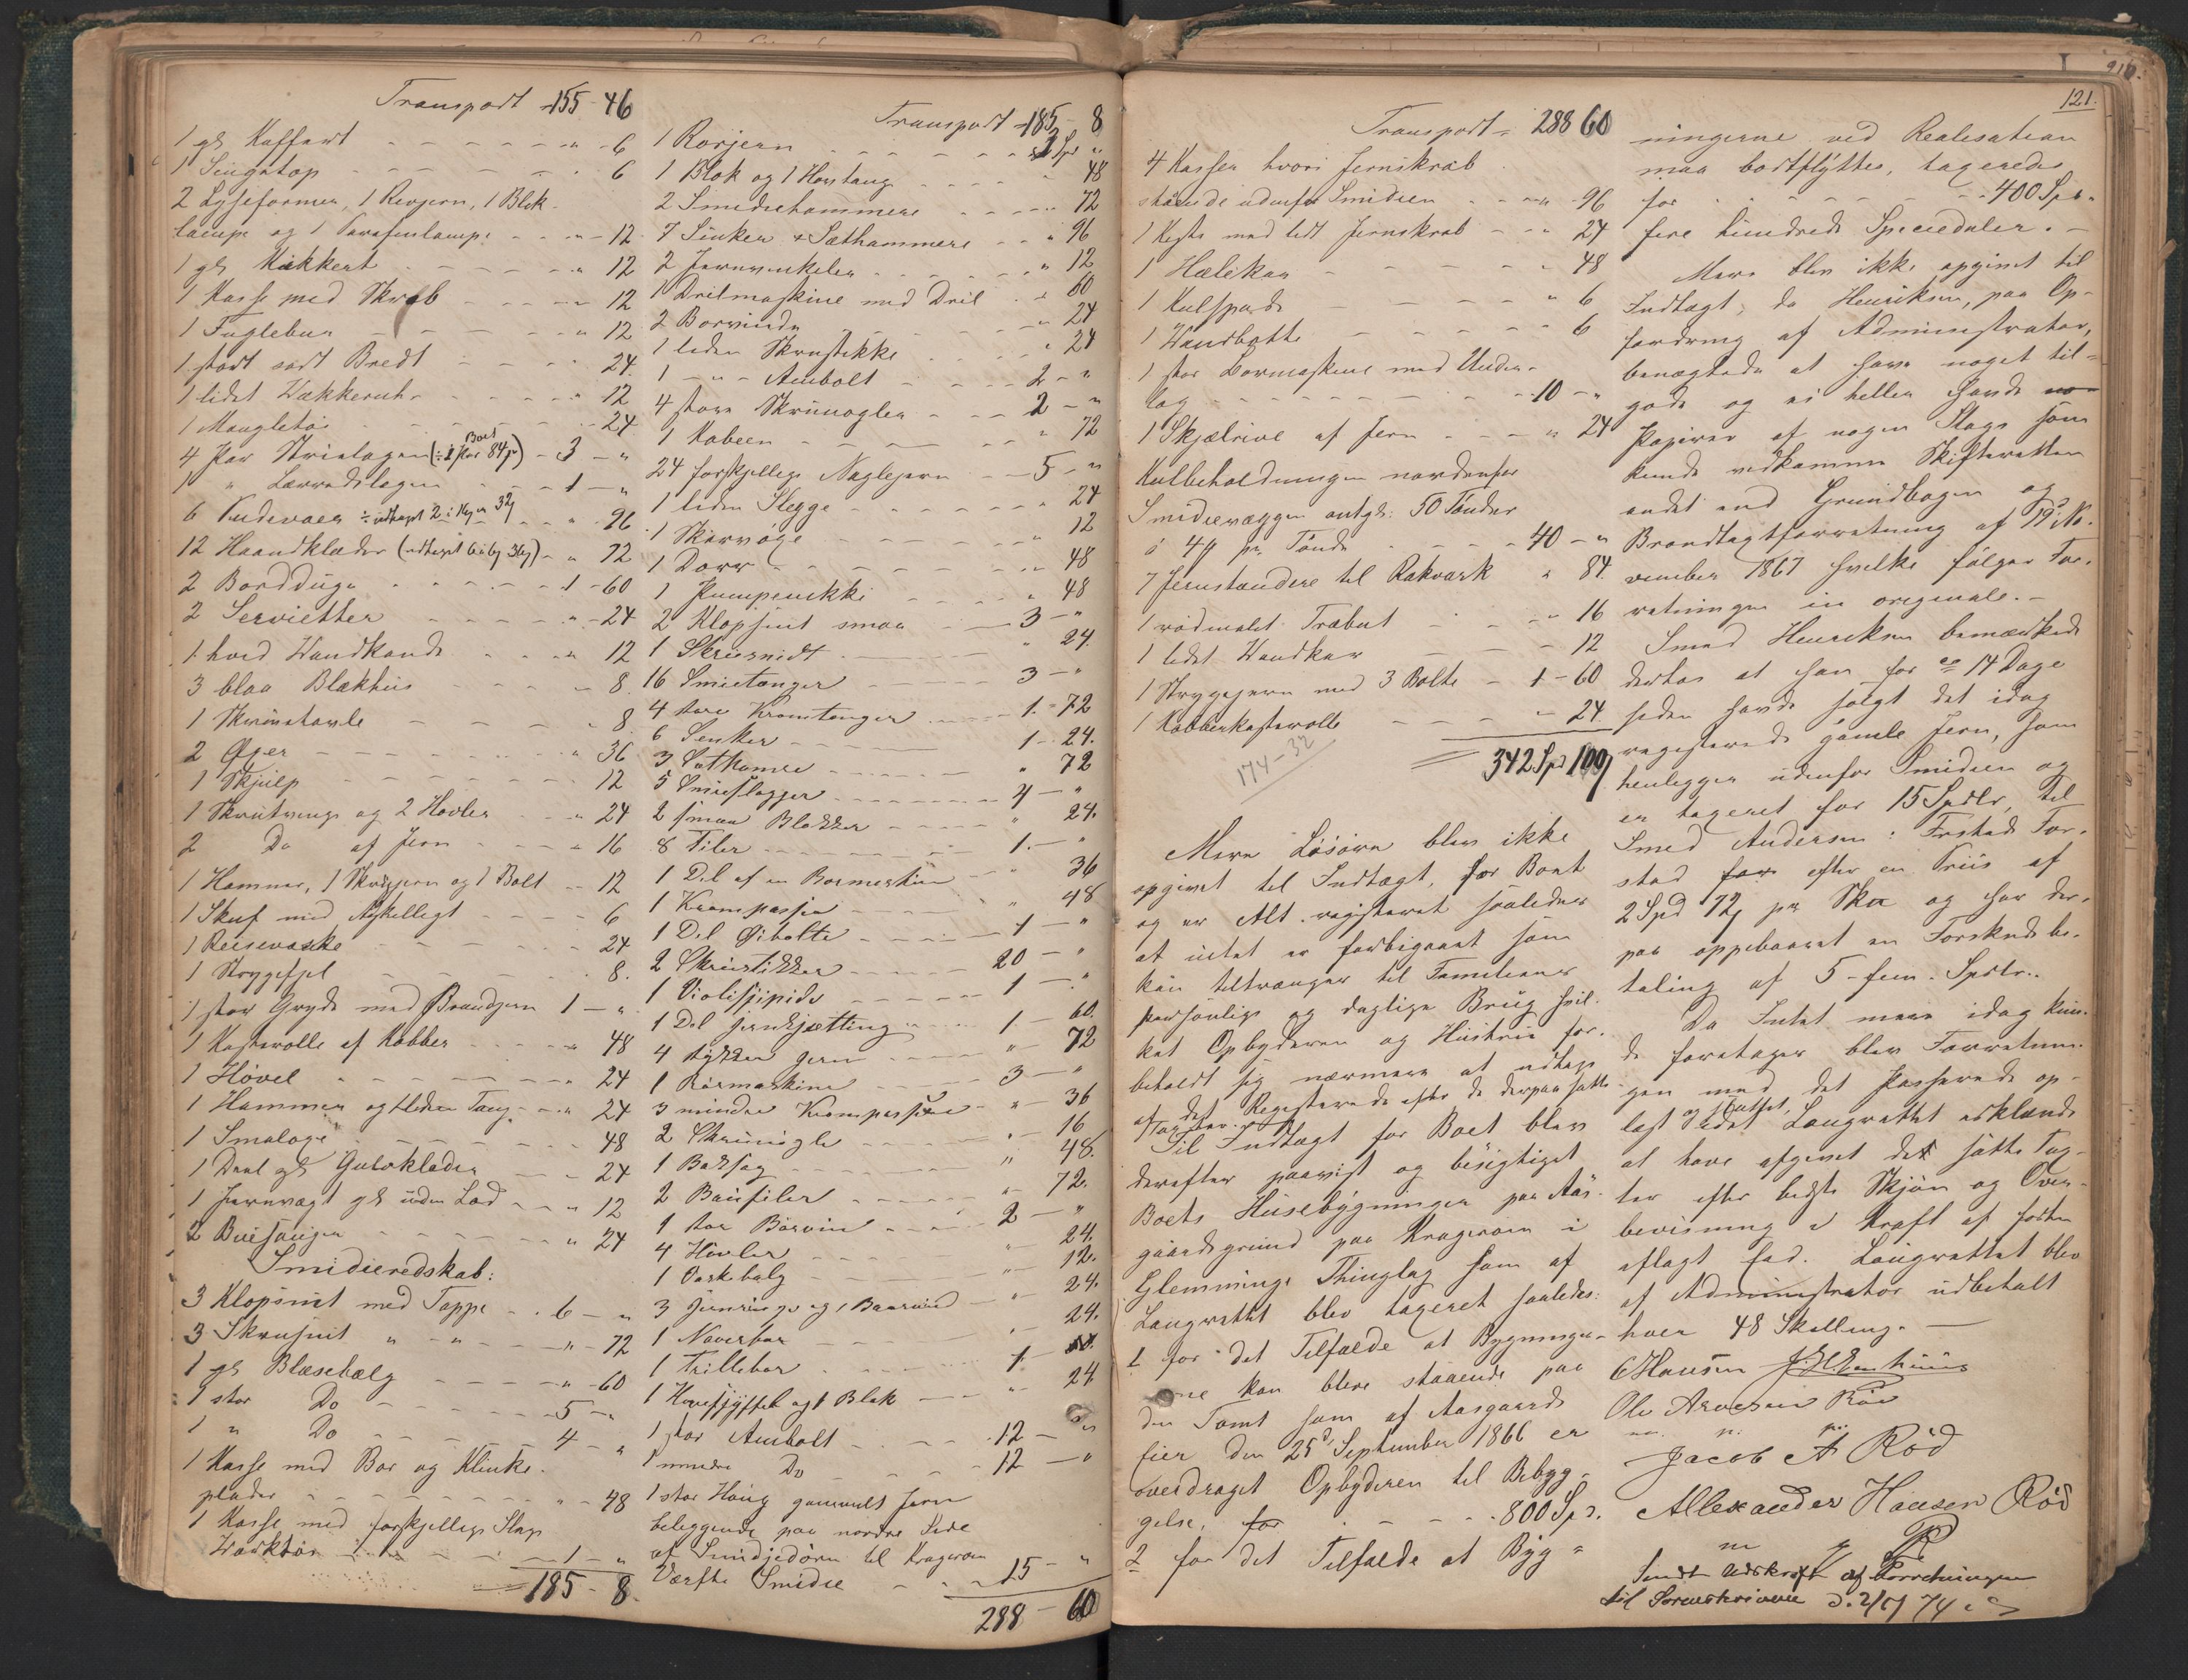 Transport 155-46
1 gl Kaffert - - - " - 6
1 Singstop - - - " 6
2 Lyseformer, 1 Revjern, 1 Blik-
lampe og 1 Parafinlampe - - " - 12
1 gl Kikkert - - - " 12
1 Kasse med Skrab - - - " 12
1 Fuglebur - - - " 12
1 stort sort Bredt - - - " 24
1 lidet Vækkeruhr - - - " 12
1 Mangletøi - - - " 24
4 Par Strielagen (÷ 1 Par 84 β) - 3 - "
1 " Lærredslagen - - - 1 - "
6 Pudevaer ÷ udtaget 2 - - " - 96
12 Haandklæder (udtaget 6 - - " 72
2 Bordduge - - - 1 - 60
2 Servietter - - - " - 24
1 hvid Vandkande - - - " 12
3 blaa Blækhus - - - " 8
1 Skrivetavle - - - " 8
2 Øser - - - " 36
1 Skjulp - - - " 12
1 Skrutvinge og 2 Høvler - - " 24
2 Do af Jern - - " 16
1 Hammer, 1 Skrujern og 1 Bolt - - 12
1 Skuf med Adskelligt - - - 6
1 Reisevæske - - - 24
1 Strygefjel - - - 8.
1 stor Gryde med Brandjern 1 - "
1 Kasterolle af Kobber - - - " 48
1 Høvel - - - " 24
1 Hammer og 1 liden Tang - - " 24
1 Smaloge - - - 48
1 Deel gl Gulvklæder - - 24
1 Jernvægt gl uden Lod - - " 12
2 Buesauger - - - " 24
Smidieredskab:
3 Klopsnit med Tappe - - 6 - "
3 Skrusnit " - " - - " - 72
1 gl Blæsebælg - - - " - 60
1 stor Do - - - 5 - "
1 " Do - - - 4 - "
1 Kasse med Bor og Klinke-
plader - - - " - 48
1 Kasse med forskjellige Slags
Værktøi - - - 1 - "
185 - 8.
Transport - 185 - 8
1 Rorjern - - - 2 Spd "
1 Blok og 1 Hovtang - - - 48
2 Smediehammere - - - 72
7 Sinker & Sæthammere - - " 96
2 Jernvinkeler - - - " 12
1 Drilmaskine med Dril - - " 60
2 Borvinde - - - " 24
1 liden Skrustikke - - - " 24
1 - " - Ambolt - - - 2 - "
4 store Skrunøgler - - - 2 - "
1 Kobeen - - - " 72
24 forskjellige Naglejern - - 5 - "
1 liden Slegge - - - " 24
1 Skarvøge - - - " 12
1 Dorr - - - " 48
1 Pumpenikke - - - " 48
2 Klopsnit smaa - - 3 - "
1 Skrusnidt - - - " 24.
16 Smietænger - - - 3 - "
4 store Kromtænger - - - 1 - 72
6 Senker - - - 1 - 24.
3 Sæthamre - - - " 72
5 Smieslægger - - - 4 - "
2 smaa Blokker - - - " 24.
8 Filer - - - 1. - "
1 Del af en Bormaskine - - " 36
1 Krompasser - - - " 48
1 Del Øibolte - - - 1 - "
2 Skrustikker - - - 20 - "
1 Violispipide - - - 1 - "
1 Del Jernkjætting - - - 1 - 60.
4 stykker Jern - - - " - 72
1 Bormaskine - - - 3 - "
3 mindre Krompassere - - " - 36
2 Skrunøgle - - - " - 16
1 Baksag - - - " 48.
2 Bausiler - - - " - 72.
1 stor Borvin - - - 2 - "
4 Høvler - - - " - 24.
1 Vaskebalg - - - " - 12.
3 Jernringe og 1 Baarvind - - " - 24.
1 Naverbor - - - " - 24.
1 Trillebor - - - 1 -
1 Hovskjyffel og 1 Blok - - - " 24
1 stor Ambolt - - - 12 - "
1 mindre Do - - - 12 - "
1 stor Houg gammelt Jern
beliggende paa nordre Side
af Smidjedøren til Kragerøen
Værfts Smidie - - - 15 - "
288 - 60
121.
Transport - 288 60
4 Kasser hvori Jernskrab
staaende udenfor Smidien - - - " 96
1 Kiste med lidt Jernskrab - - " 24
1 Hælekar - - - " 48
1 Kulspade - - - " 6
1 Vandbøtte - - - " 6
1 stor Bormaskine med Under-
lag - - - 10 - "
1 Skjælrive af Jern - - - " 24
Kulbeholdningen nordenfor
Smidievæggen antgl: 50 Tønder
á 4 β pr Tønde - - - 40 - "
7 Jernstandere til Rakværk " 84.
1 rødmalet Træbut - - - " 16
1 lidet Vandkar - - - 12
1 Strygejern med 3 Bolte - 1 - 60
1 Kobberkasterolle - - - 24.
342 Spd 100 β
174-32
Mere Løsøre blev ikke
opgivet til Indtægt, for Boet
og er Alt registeret saaledes
at intet er forbigaaet som
kan tiltrænges til Familiens
personlige og daglige Brug hvil-
ket Opbyderen og Hustrue for-
beholdt sig nærmere at udtage
af det Registerede efter de derpaa satte
Taxter.
Til Indtægt for Boet blev
derefter paavist og besigtiget
Boets Husebygninger paa Aas-
gaards grund paa Kragerøen i
Glemminge Thinglag som af
Laugrettet blev taxeret saaledes:
1 for det Tilfælde at Bygninger-
ne kan blive staaende paa
den Tomt som af Aasgaards
Eier den 25d September 1866 er
overdraget Opbyderen til Bebyg-
gelse, for - - - 800 Spd.
2 for det Tilfælde at Byg-
ningerne ved Realisation
maa bortflyttes, taxerede
for - - - 400 Spd "
fire hundrede Speciedaler. -
Mere blev ikke opgivet til
Indtægt, da Henriksen, paa Op-
fordring af Administrator,
benægtede at have noget til-
gode og ei heller havde
Papirer af nogen Slags som
kunde vedkomme Skifteretten
andet end Grundbogen og
Brandtagtforretning af 19d No-
vember 1867 hvilke følger For-
retningen in originale. -
Smed Henriksen bemærkede
derhos at han for ca 14 Dage
siden havde solgt det idag
registerede gamle Jern, som
henligger udenfor Smidien og
er taxeret for 15 Spdlr, til
Smed Andersen i Fredrikstad For-
stad for efter en Priis af
2 Spd 72 β pr Sk og har der-
paa oppebaaret en Forskudsbe-
taling af 5 - fem - Spdlr.
Da Intet mere idag kun-
de foretages blev Forretnin-
gen med det Passerede op-
læst og sluttet, idet Laugrettet erklærede
at have afgivet det satte Tax-
ter efter bedste Skjøn og Over-
bevisning i Kraft af forhen
aflagt Eed. Laugrettet blev
af Administrator udbetalt
hver 48 Skilling. -
CHansen
Ole Arvesen Røe
m. p. p.
Jacob A Rød
Allexander Hansen Rød
m p P
Sendt Udskrift af Forretningen
til Sorenskriveren d. 2/5 74